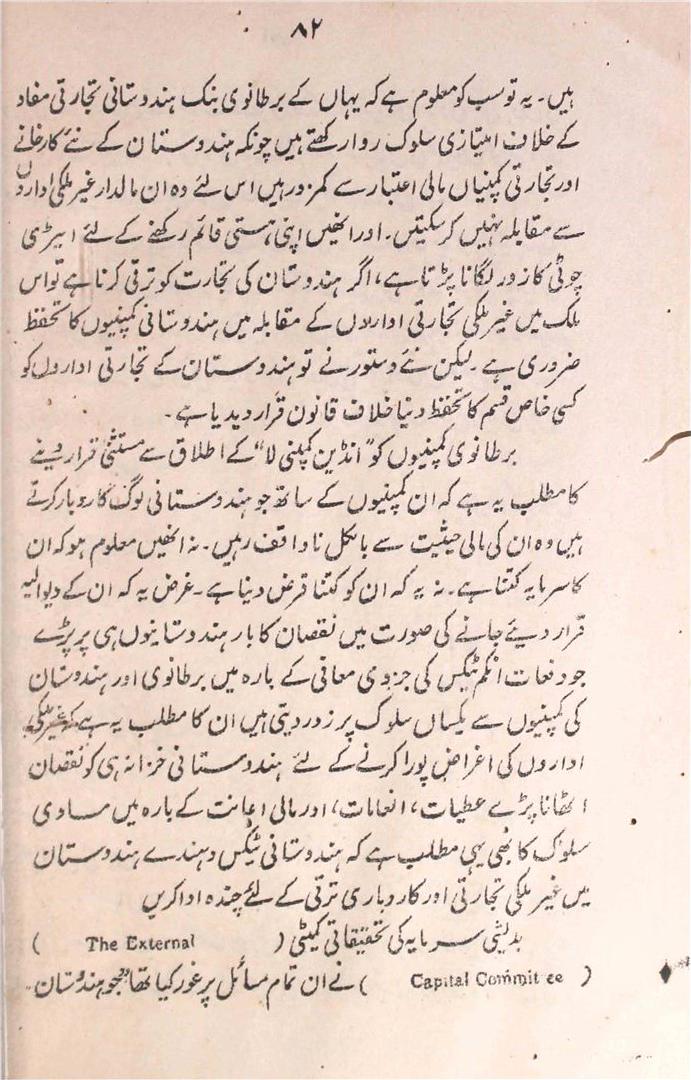 ۸۲
ہیں۔ یہ تو سب کو معلوم ہے کہ یہاں کے برطانوی بنک ہندوستانی تجارتی مفاد
کے خلاف امتیازی سلوک روا رکھتے ہیں چونکہ ہندوستان کے نئے کارخانے
اور تجارتی کمپنیاں مالی اعتبار سے کمزور ہیں اس لئے وہ ان مالدار غیر ملکی اداروں
سے مقابلہ نہیں کر سکیتں۔ اور انھیں اپنی ہستی قائم رکھنے کے لئے ایڑی
چوٹی کا زور لگانا پڑتا ہے، اگر ہندوستان کی تجارت کو ترقی کرنا ہے تو اس
ملک میں غیر ملکی تجارتی اداروں کے مقابلہ میں ہندوستانی کمپنیوں کا تحفظ
ضروری ہے۔ لیکن نئے دستور نے تو ہندوستان کے تجارتی اداروں کو
کسی خاص قسم کا تحفظ دینا خلاف قانون قرار دیدیا ہے۔
برطانوی کمپنیوں کو "انڈین کمپنی لا" کے اطلاق سے مستثنیٰ قرار دینے
کا مطلب یہ ہے کہ ان کمپنیوں کے ساتھ جو ہندوستانی لوگ کاروبار کرتے
ہیں وہ ان کی مالی حیثیت سے بالکل ناواقف رہیں۔ نہ انھیں معلوم ہو کہ ان
کا سرمایہ کتنا ہے۔ نہ یہ کہ ان کو کتنا قرض دینا ہے۔ غرض یہ کہ ان کے دیوالیہ
قرار دیئے جانے کی صورت میں نقصان کا بار ہندوستانیوں ہی پر پڑے
جو دفعات انکم ٹیکس کی جزوی معافی کے بارہ میں برطانوی اور ہندوستان
کی کمپنیوں سے یکساں سلوک پر زور دیتی ہیں ان کا مطلب یہ ہے کہ غیر ملکی
اداروں کی اغراض پورا کرنے کے لئے ہندوستانی خزانہ ہی کو نقصان
اٹھانا پڑے عطیات، انعامات، اور مالی اعانت کے بارہ میں مساوی
سلوک کا بھی یہی مطلب ہے کہ ہندوستانی ٹیکس دہندے ہندوستان
میں غیر ملکی تجارتی اور کاروباری ترقی کے لئے چندہ ادا کریں
بدیشی سرمایہ کی تحقیقاتی کمیٹی ( The External )
( Capital Committee ) نے ان تمام مسائل پر غور کیا تھا "جو ہندوستان